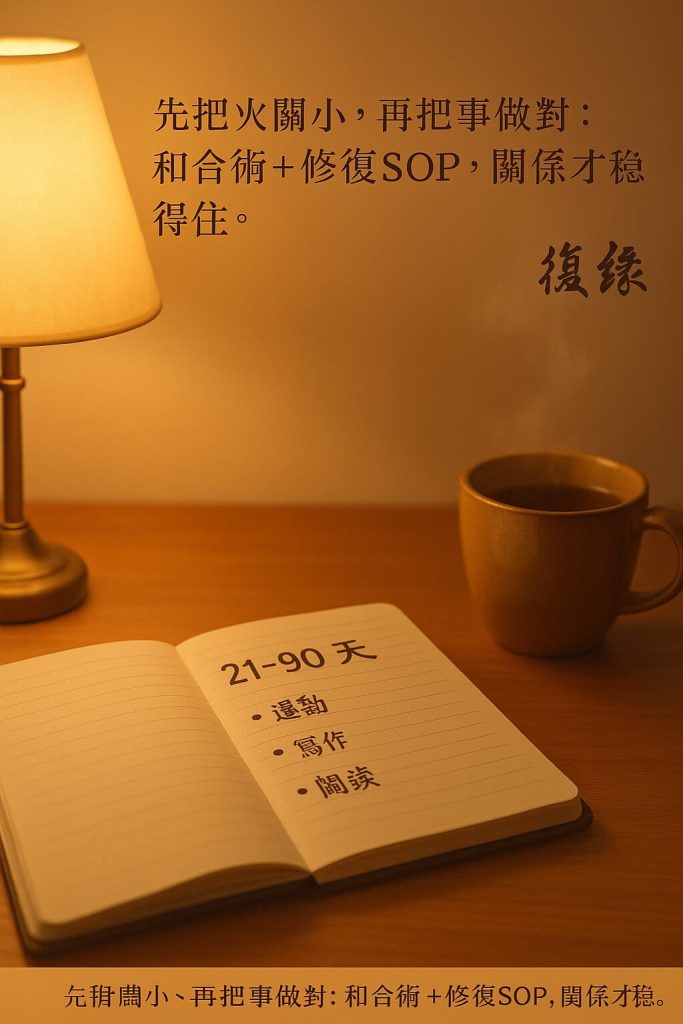 先把火關小，再把事做對：
和合術+修復SOP，關係才稳
得住。
復緣
21-90 天
• 運動
• 寫作
• 閱读
小、再把事做對: 和合術 +修復SOP, 関係才稳。